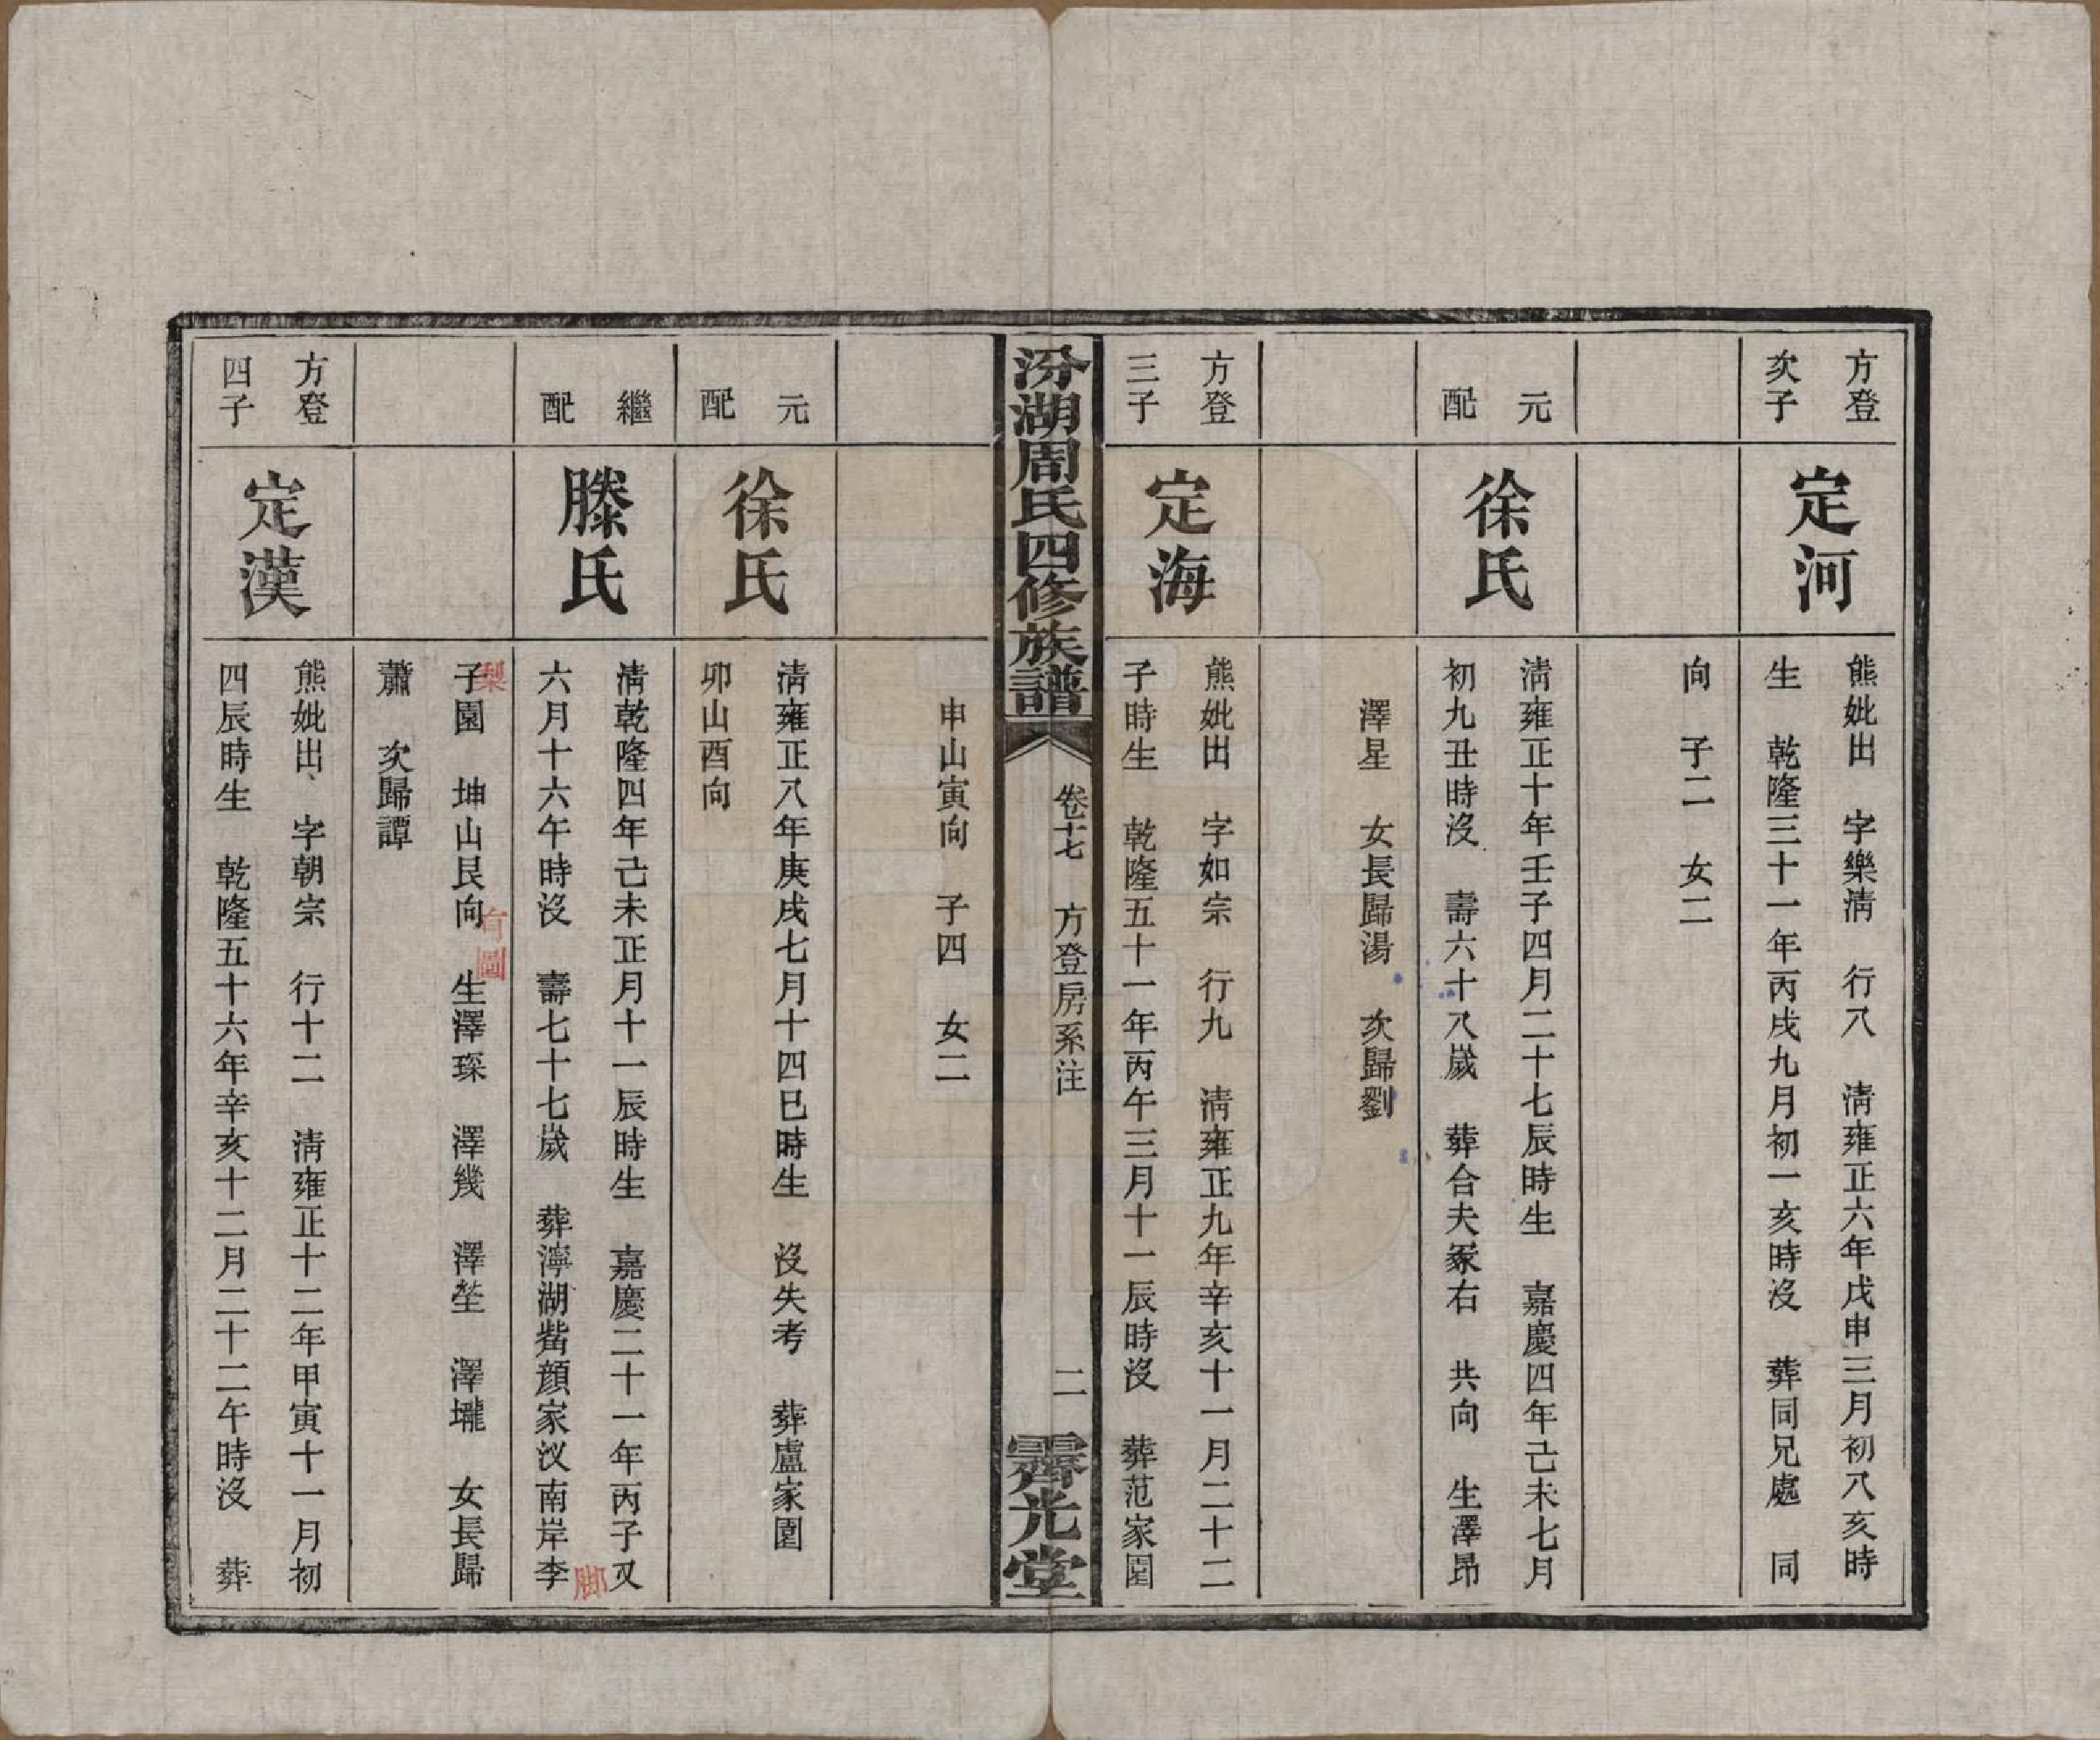 方登
次子
定河
熊妣出　字樂淸　行八　淸雍正六年戊申三月初八亥時
生　乾隆三十一年丙戌九月初一亥時沒　葬同兄處　同
向　子二　女二
元
配
徐氏
淸雍正十年壬子四月二十七辰時生　嘉慶四年己未七月
初九丑時沒　壽六十八歲　葬合夫冢右　共向　生澤昂
澤星　女長歸湯　次歸劉
方登
三子
定海
熊妣出　字如宗　行九　淸雍正九年辛亥十一月二十二
子時生　乾隆五十一年丙午三月十一辰時沒　葬范家園
汾湖周氏四修族譜
卷十七　方登房系注
二
霽光堂
申山寅向　子四　女二
元
配
徐氏
淸雍正八年庚戌七月十四巳時生　沒失考　葬盧家園
卯山酉向
繼
配
滕氏
淸乾隆四年己未正月十一辰時生　嘉慶二十一年丙子又
六月十六午時沒　壽七十七歲　葬濘湖觜顏家汊南岸李
脚
梨
有圖
子園　坤山艮向　生澤琛　澤幾　澤堃　澤壠　女長歸
蕭　次歸譚
方登
四子
定漢
熊妣出　字朝宗　行十二　淸雍正十二年甲寅十一月初
四辰時生　乾隆五十六年辛亥十二月二十二午時沒　葬